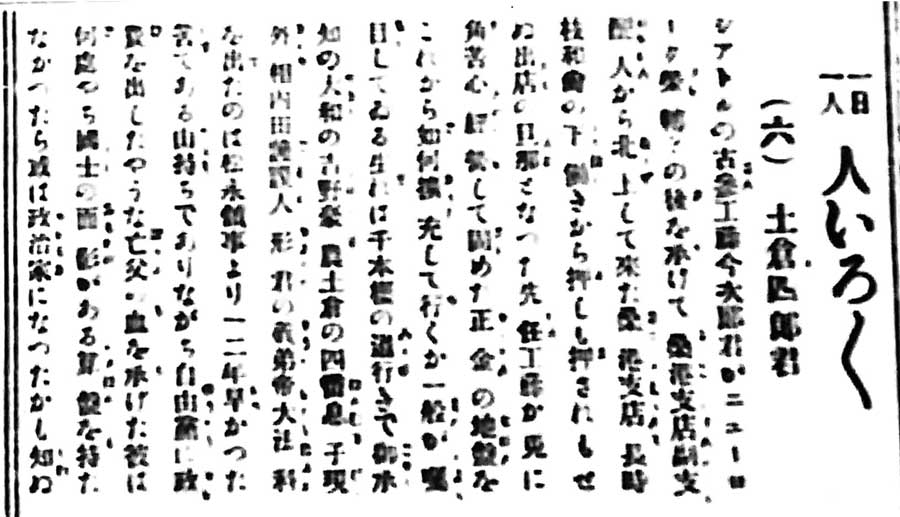 一日一人 人いろ〱
(六) 土倉四郎君
シアトルの古参工藤今次郎君がニューヨ
ーク栄転の後を承けて桑港支店副支
配人から北上して来た桑港支店長時
枝和爾の下働きから押しも押されもせ
ぬ出店の旦那となつた先任工藤が兎に
角苦心経営して固めた正金の地盤を
これから如何拡充して行くか一般が嘱
目してゐる生れは千本桜の道行きで御承
知の大和の吉野豪農土倉の四番息子現
外相内田康哉人形君の義弟帝大社科
を出たのは松永領事より一二年早かつた
筈である山持ちでありながら自由党に政
費を出したやうな亡父の血を承けた彼は
何處やら國士の面影がある算盤を持た
なかつたら或は政治家になつたかも知ぬ